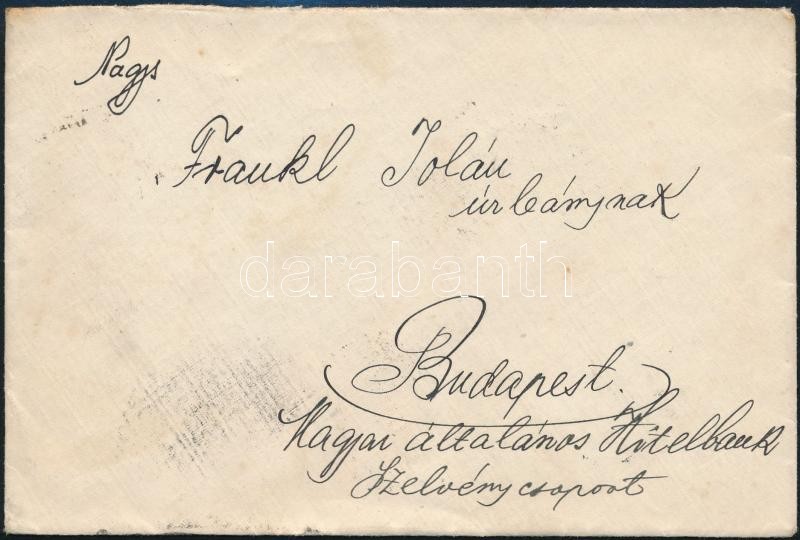 Nags
Frankl Jolán
úrleánynak
darabanth
Budapest.
Magyar általános Hitelbank
Szelvénycsoport